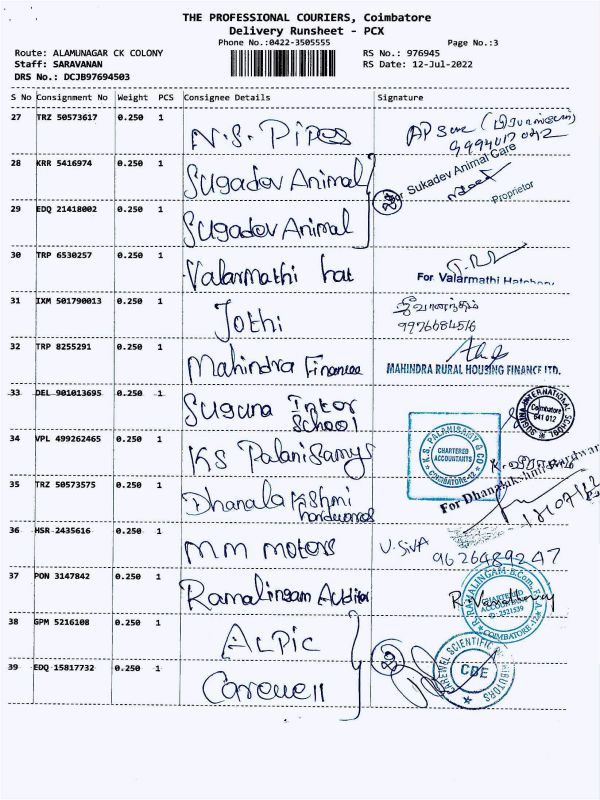 THE PROFESSIONAL COURIERS, Coimbatore
Delivery Runsheet - PCX
Phone No.:0422-3505555 Page No.:3
Route: ALAMUNAGAR CK COLONY RS No.: 976945
Staff: SARAVANAN RS Date: 12-Jul-2022
DRS No.: DCJB97694503
S No Consignment No Weight PCS Consignee Details Signature
27 TRZ 50573617 0.250 1 N.S. Pipes
28 KRR 5416974 0.250 1 Sugadev Animal For Sukadev Animal Care
Proprietor
29 EDQ 21418002 0.250 1 Sugadev Animal
30 TRP 6530257 0.250 1 Valarmathi hat For Valarmathi Hatchery
31 IXM 501790013 0.250 1 Jothi
9976684516
32 TRP 8255291 0.250 1 Mahindra Finance MAHINDRA RURAL HOUSING FINANCE LTD.
33 DEL 901013695 0.250 1 Suguna Inter School SUGUNA INTERNATIONAL SCHOOL Coimbatore 641 012
34 VPL 499262465 0.250 1 KS Palanisamys K.S. PALANISAMY & CO CHARTERED ACCOUNTANTS COIMBATORE-12
35 TRZ 50573575 0.250 1 Dhanalakshmi hardwares
36 HSR 2435616 0.250 1 MM Motors U. SIVA
9626489247
37 PON 3147842 0.250 1 Ramalingam Auditor R. RAMALINGAM B.Com, F.C.A. CHARTERED ACCOUNTANT COIMBATORE-12
38 GPM 5216108 0.250 1 ALPIC
39 EDQ 15817732 0.250 1 Carewell CAREWEL SCIENTIFIC DISTRIBUTORS CBE